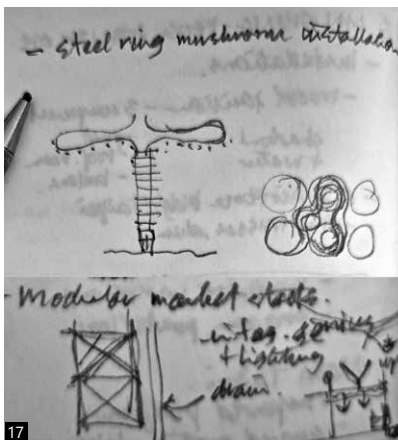 - steel ring mushroom installation
- Modular market stalls.
integ. services
+ lighting
drain.
17